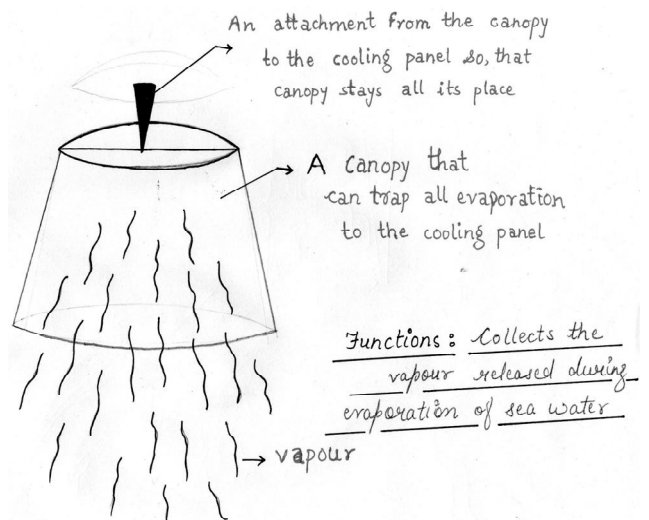 An attachment from the canopy
to the cooling panel so, that
canopy stays all its place
A Canopy that
can trap all evaporation
to the cooling panel
Functions: Collects the
vapour released during
evaporation of sea water
vapour